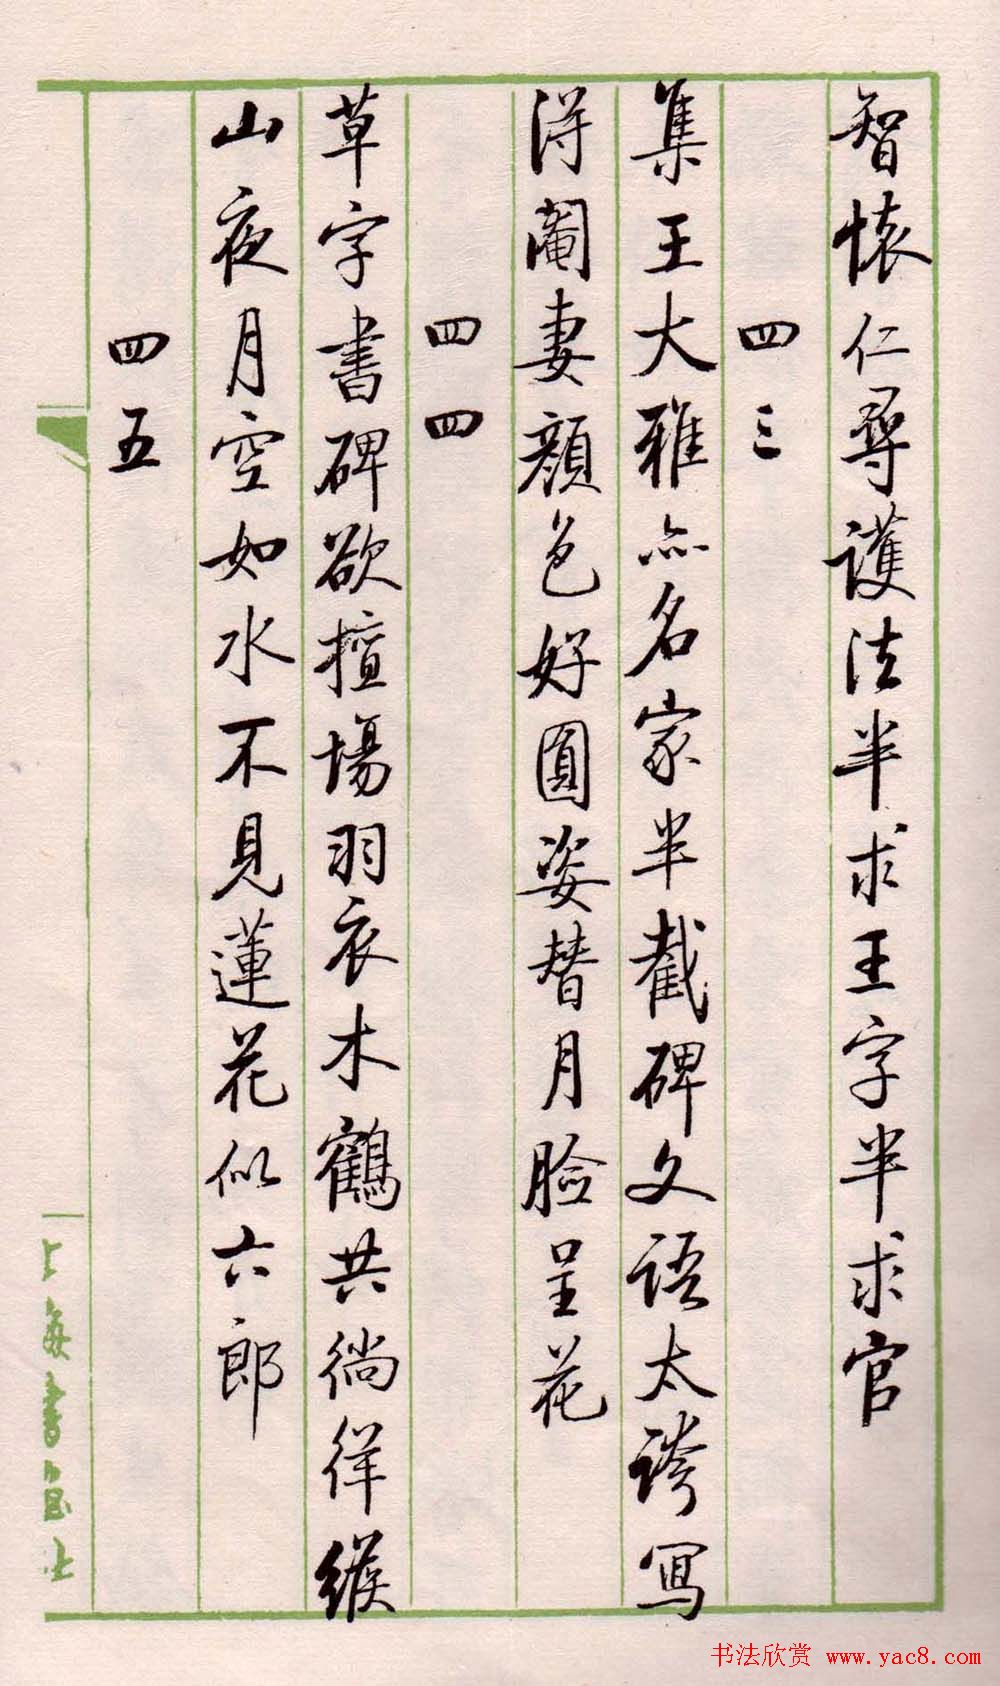 智懷仁尋護法半求王字半求官
四三
集王大雅亦名家半截碑文語太誇寫
得閹妻顏色好圓姿替月臉呈花
四四
草字書碑欲擅場羽衣木鶴共徜徉緱
山夜月空如水不見蓮花似六郎
四五
上海書畫社
书法欣赏 www.yac8.com